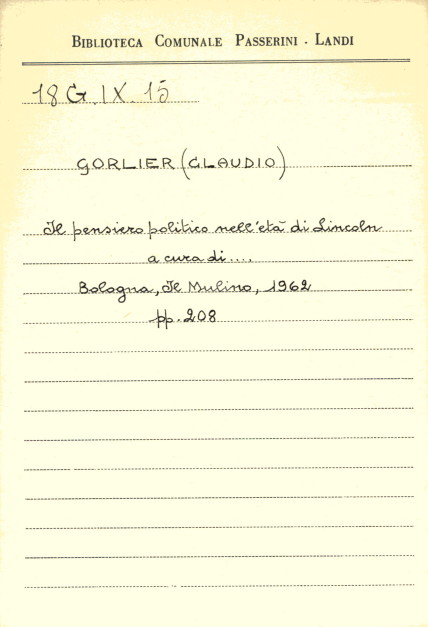 BIBLIOTECA COMUNALE PASSERINI - LANDI
18 G. IX. 15
GORLIER (CLAUDIO)
Il pensiero politico nell'età di Lincoln
a cura di....
Bologna, Il Mulino, 1962
pp. 208